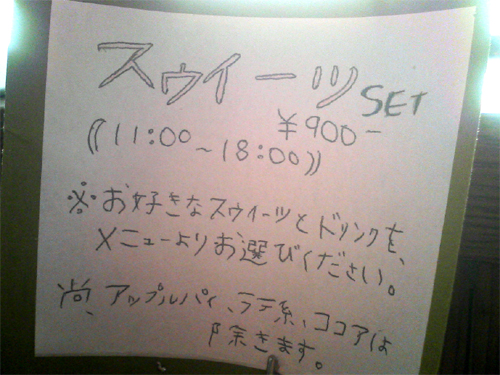 スウィーツSET
¥900-
((11:00
~18:00))
※お好きなスウィーツとドリンクを、
メニューよりお選びください。
尚、アップルパイ、ラテ系、ココアは
除きます。